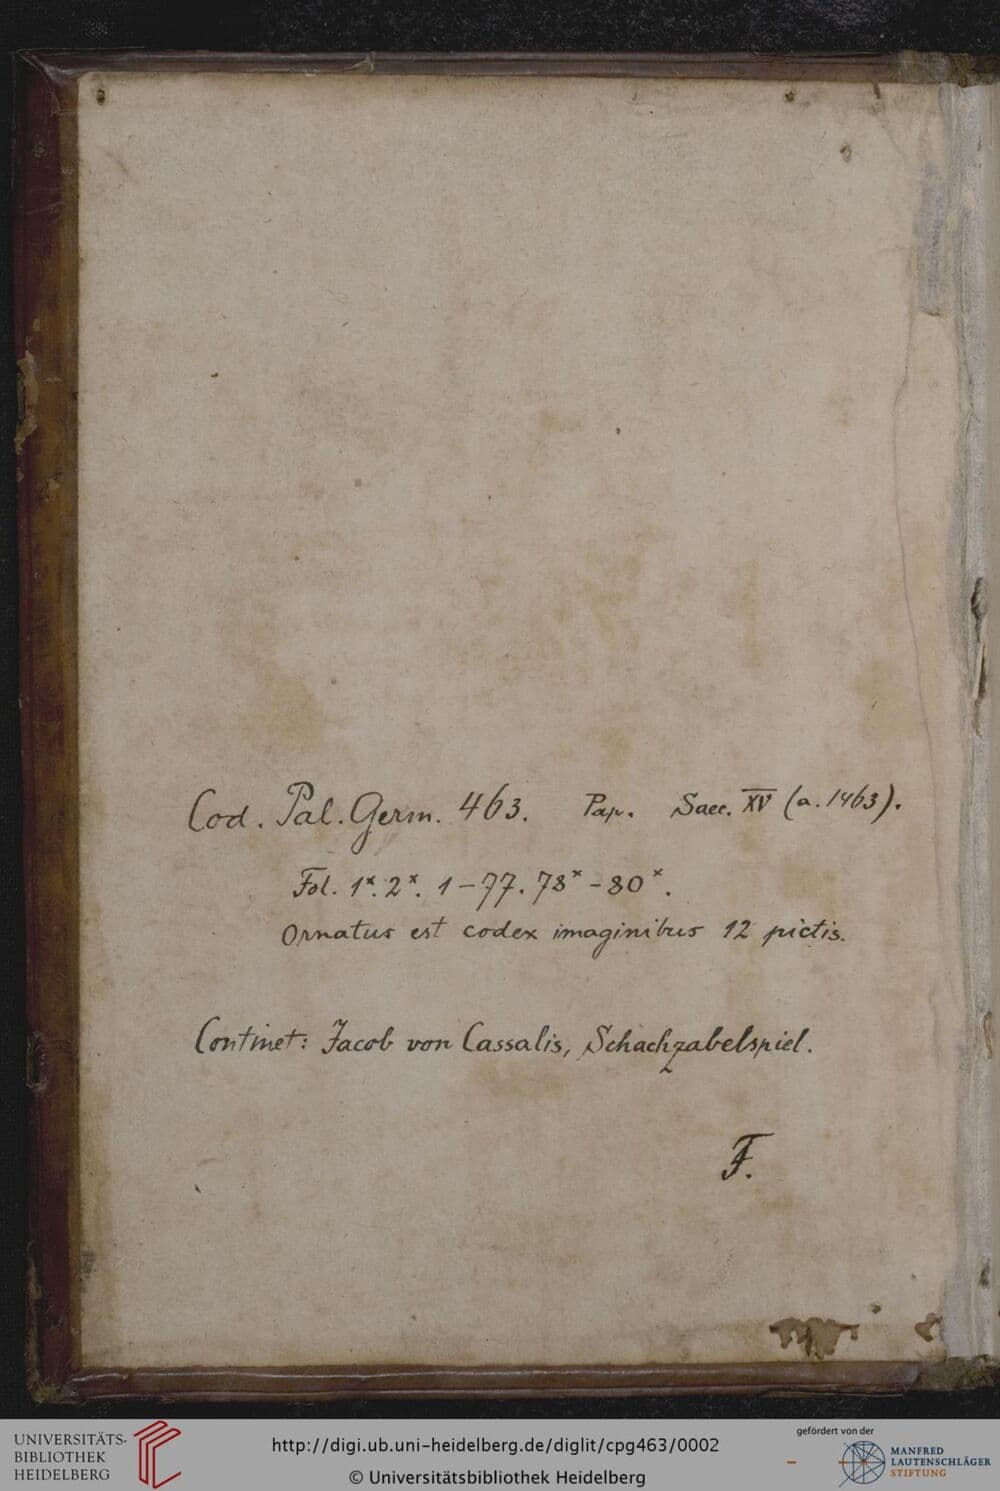 Cod. Pal. Germ. 463. Pap. Saec. XV (a. 1463).
Fol. 1*. 2*. 1-77. 78*-80*.
Ornatus est codex imaginibus 12 pictis.
Continet: Jacob von Cassalis, Schachzabelspiel.
F.
UNIVERSITÄTS-
BIBLIOTHEK
HEIDELBERG
http://digi.ub.uni-heidelberg.de/diglit/cpg463/0002
© Universitätsbibliothek Heidelberg
gefördert von der
MANFRED
LAUTENSCHLÄGER
STIFTUNG